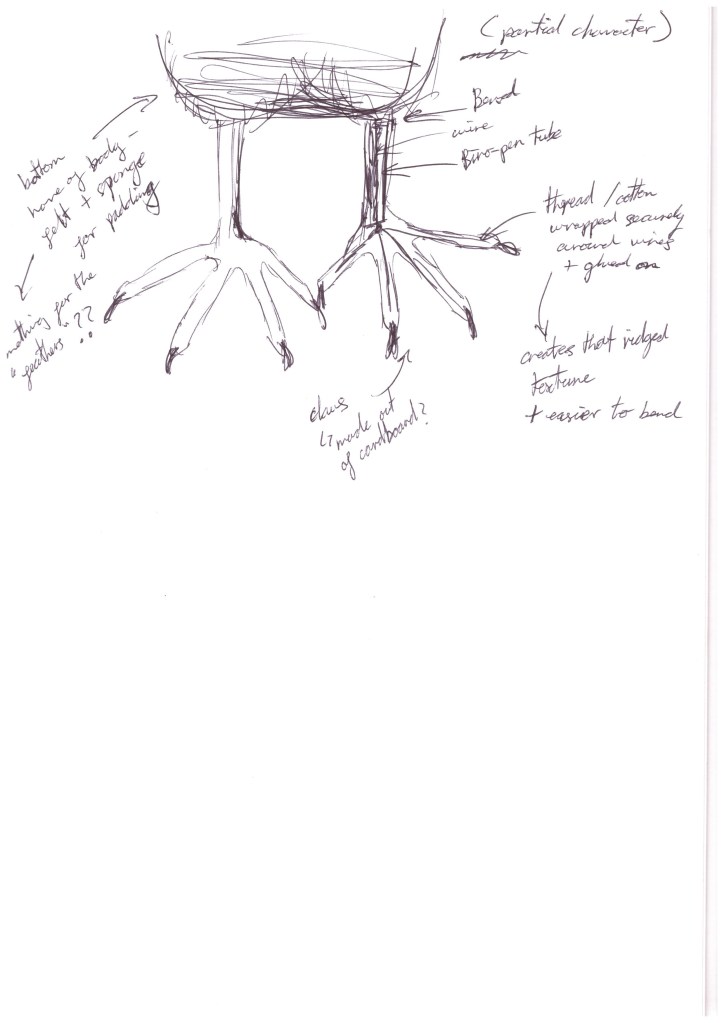 (partial character)
wire
Biro-pen tube
bottom
of body -
felt + sponge
for padding
for the
"feathers"??
thread / cotton
wrapped securely
around wires
+ glued on
creates that ridged
texture
+ easier to bend
claws
made out
of cardboard?